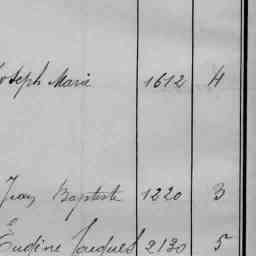 Joseph Marie 1612 4
Jean Baptiste 1220 3
Eugène Jacques 2130 5